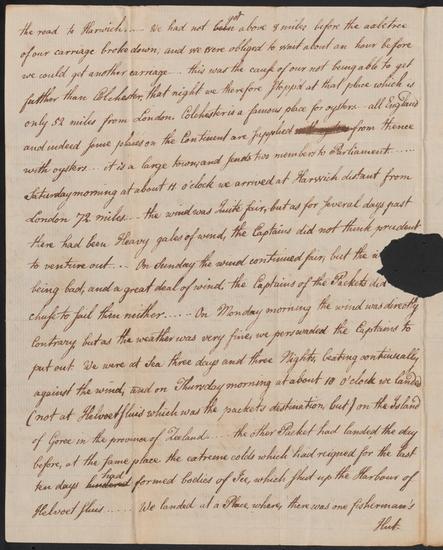 the road to Harwich..... We had not got above 8 miles before the axletree
of our carriage broke down, and we were obliged to wait about an hour before
we could get another carriage... this was the cause of our not being able to get
farther than Colchester, that night we therefore stopp'd at that place which is
only 52 miles from London. Colchester is a famous place for oysters... all England
and indeed some places on the Continent are supplied from thence
with oysters... it is a large town, and sends two members to Parliament.....
Saturday morning at about 11 o'clock we arrived at Harwich distant from
London 72 miles... the wind was quite fair, but as for several days past
there had been Heavy gales of wind, the Captains did not think prudent
to venture out.... On Sunday the wind continued fair, but the
being bad, and a great deal of wind, the Captains of the Packets did
chuse to sail then neither...... On Monday morning the wind was directly
contrary but as the weather was very fine, we perswaded the Captains to
put out We were at Sea three days and three Nights, beating continually
against the wind, and on Thursday morning at about 10 o'clock we landed
(not at Helvoetsluis which was the packets destination, but) on the Island
of Goree in the province of Zeeland..... the other Packet had landed the day
before, at the same place the extreme colds which had reigned for the last
ten days had formed bodies of Ice, which shut up the Harbour of
Helvoet sluis..... We landed at a Place where, there was one fisherman's
Hut.